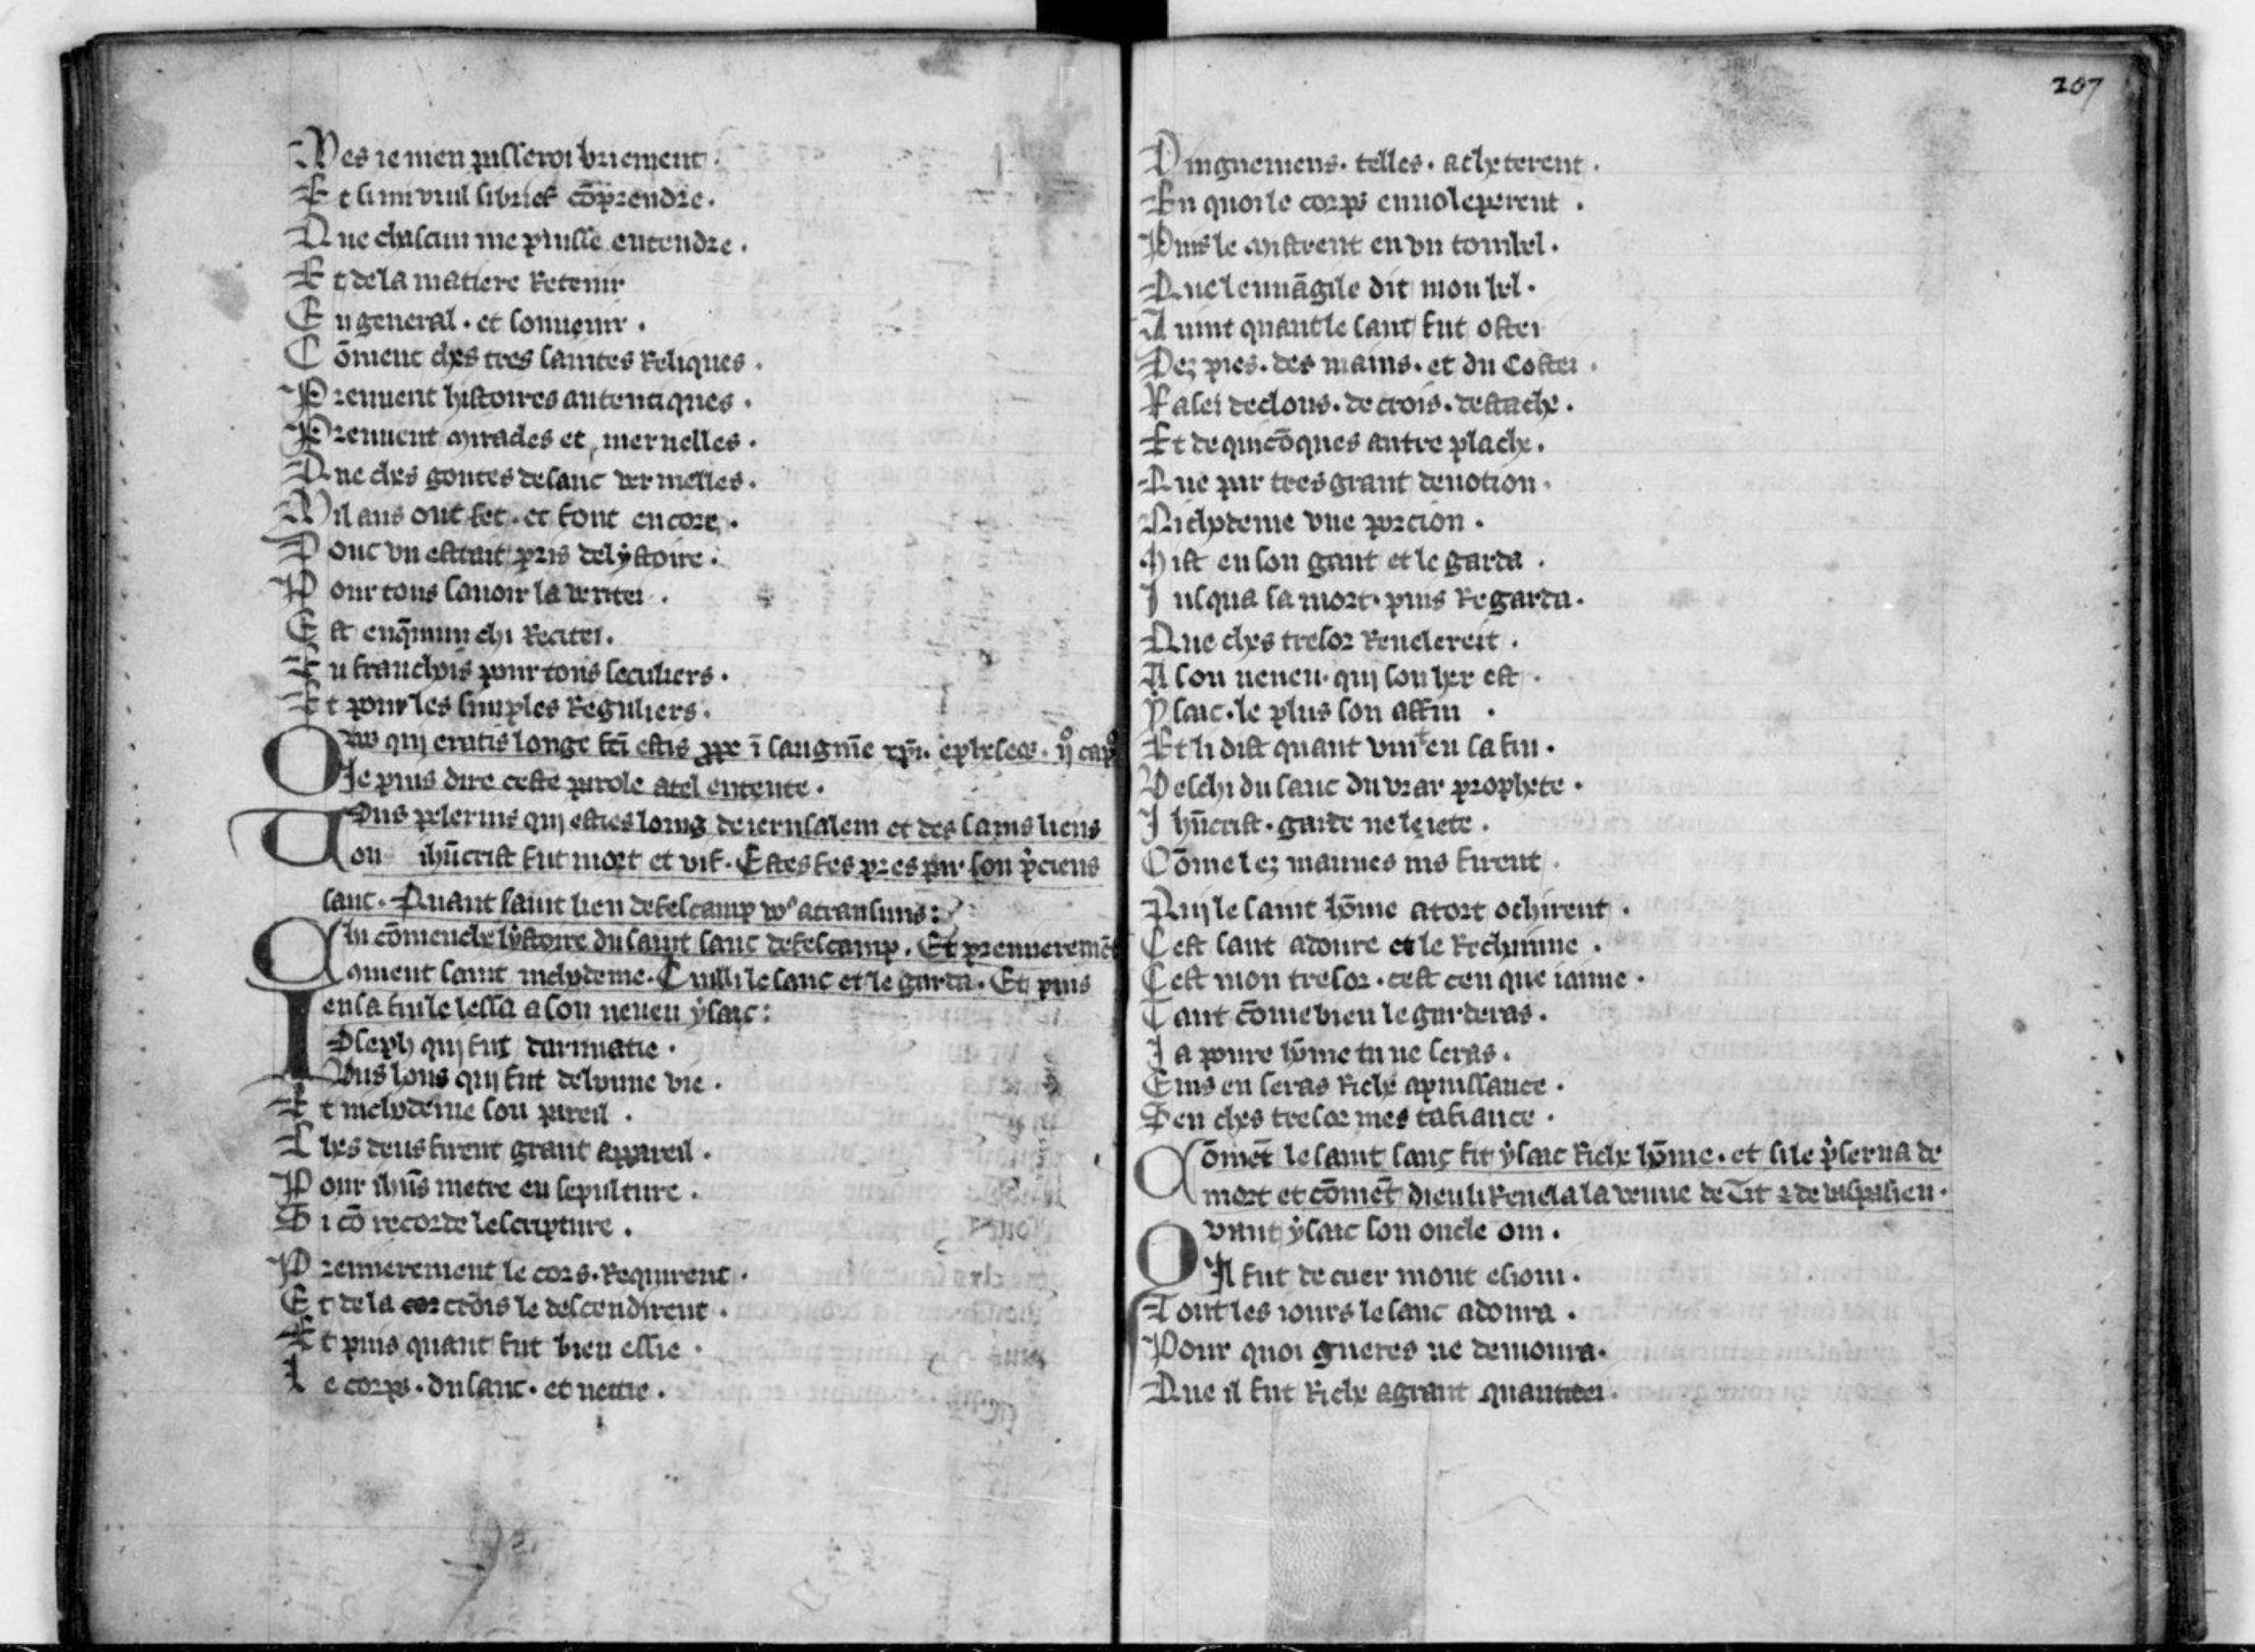 Mes ie men passeroi briement .
Et si mi vuil si brief cōprendre .
Que chascun me puisse entendre .
Et de la matiere Retenir
En general . et souuenir .
Cōment ches tres saintes Reliques .
Prennent histoires autentiques .
Prennent miracles et meruelles .
Que ches goutes de sanc vermelles .
Mil ans ont fet . et font encore .
Donc vn estrait pris de lystoire .
Pour tous sauoir la veritei .
Est enq̄mun chi Recitei .
En franchois pour tous seculiers .
Et pour les simples Reguliers .
Vos qui eratis longe fc̄i estis ꝓpe ī sanguīe xp̄i . epheseos . ij° cap°
Je puis dire ceste parole a tel entente .
Vous pelerins qui esties loing de ierusalem et des sains liens
ou ihūcrist fut mort et vif . Estes fes pres par son p̄cieus
sanc . Quant saint lieu de fescamp vos a transmis :
Chi cōmenche lystoire du saint sanc de fescamp . Et premieremēt
coment saint nichodeme . Cuilli le sanc et le garda . Et puis
en la fin le lessa a son neueu ysaac :
Joseph qui fut darimatie .
Vous sous qui fut de bonne vie .
Et nichodeme son pareil .
Ches deus firent grant appareil .
Pour ihūs metre en sepulture .
Si cō recorde lescripture .
Premierement le cors . Requirent .
Et de la crois le descendirent .
Et puis quant fut bien essie .
Le corps . du sanc . et nettie .
207
Oingnemens . telles . acheterent .
En quoi le corps enuoleperent .
Puis le mistrent en vn tombel .
Que leuuāgile dit mou bel .
Auint quant le sanc fut ostei
Dez pies . des mains . et du Costei .
Falei de clous . de crois . destache .
Et de quicōques autre plache .
Que par tres grant deuotion .
Nichodeme vne porcion .
Mist en son gant et le garda .
Jusqua sa mort . puis Regarda .
Que ches tresor Reueleroit .
A son neueu . qui son her est .
ysaac . le plus son affin .
Et li dist quant vint en sa fin .
Veschi du sanc du vrai prophete .
Jhūcrist . garde ne le iete .
Cōme lez mauues nis firent .
Qui le saint hōme a tort ochirent .
Cest sanc adoure et le Rechimme .
Cest mon tresor . cest ceu que iaime .
Tant cōme bien le garderas .
Ja poure hōme tu ne seras .
Eins en seras Riche a puissance .
Sen ches tresor mes ta fiance .
Cōmēt le saint sanc fit ysaac Riche hōme . et si le p̄serua de
mort et cōmēt dieu li Reuela la venue de Tit ⁊ de vaspasien .
Quant ysaac son oncle oui .
Il fut de cuer mout esioui .
Tout les iours le sanc adoura .
Pour quoi gueres ne demoura .
Que il fut Riche a grant quantitei .